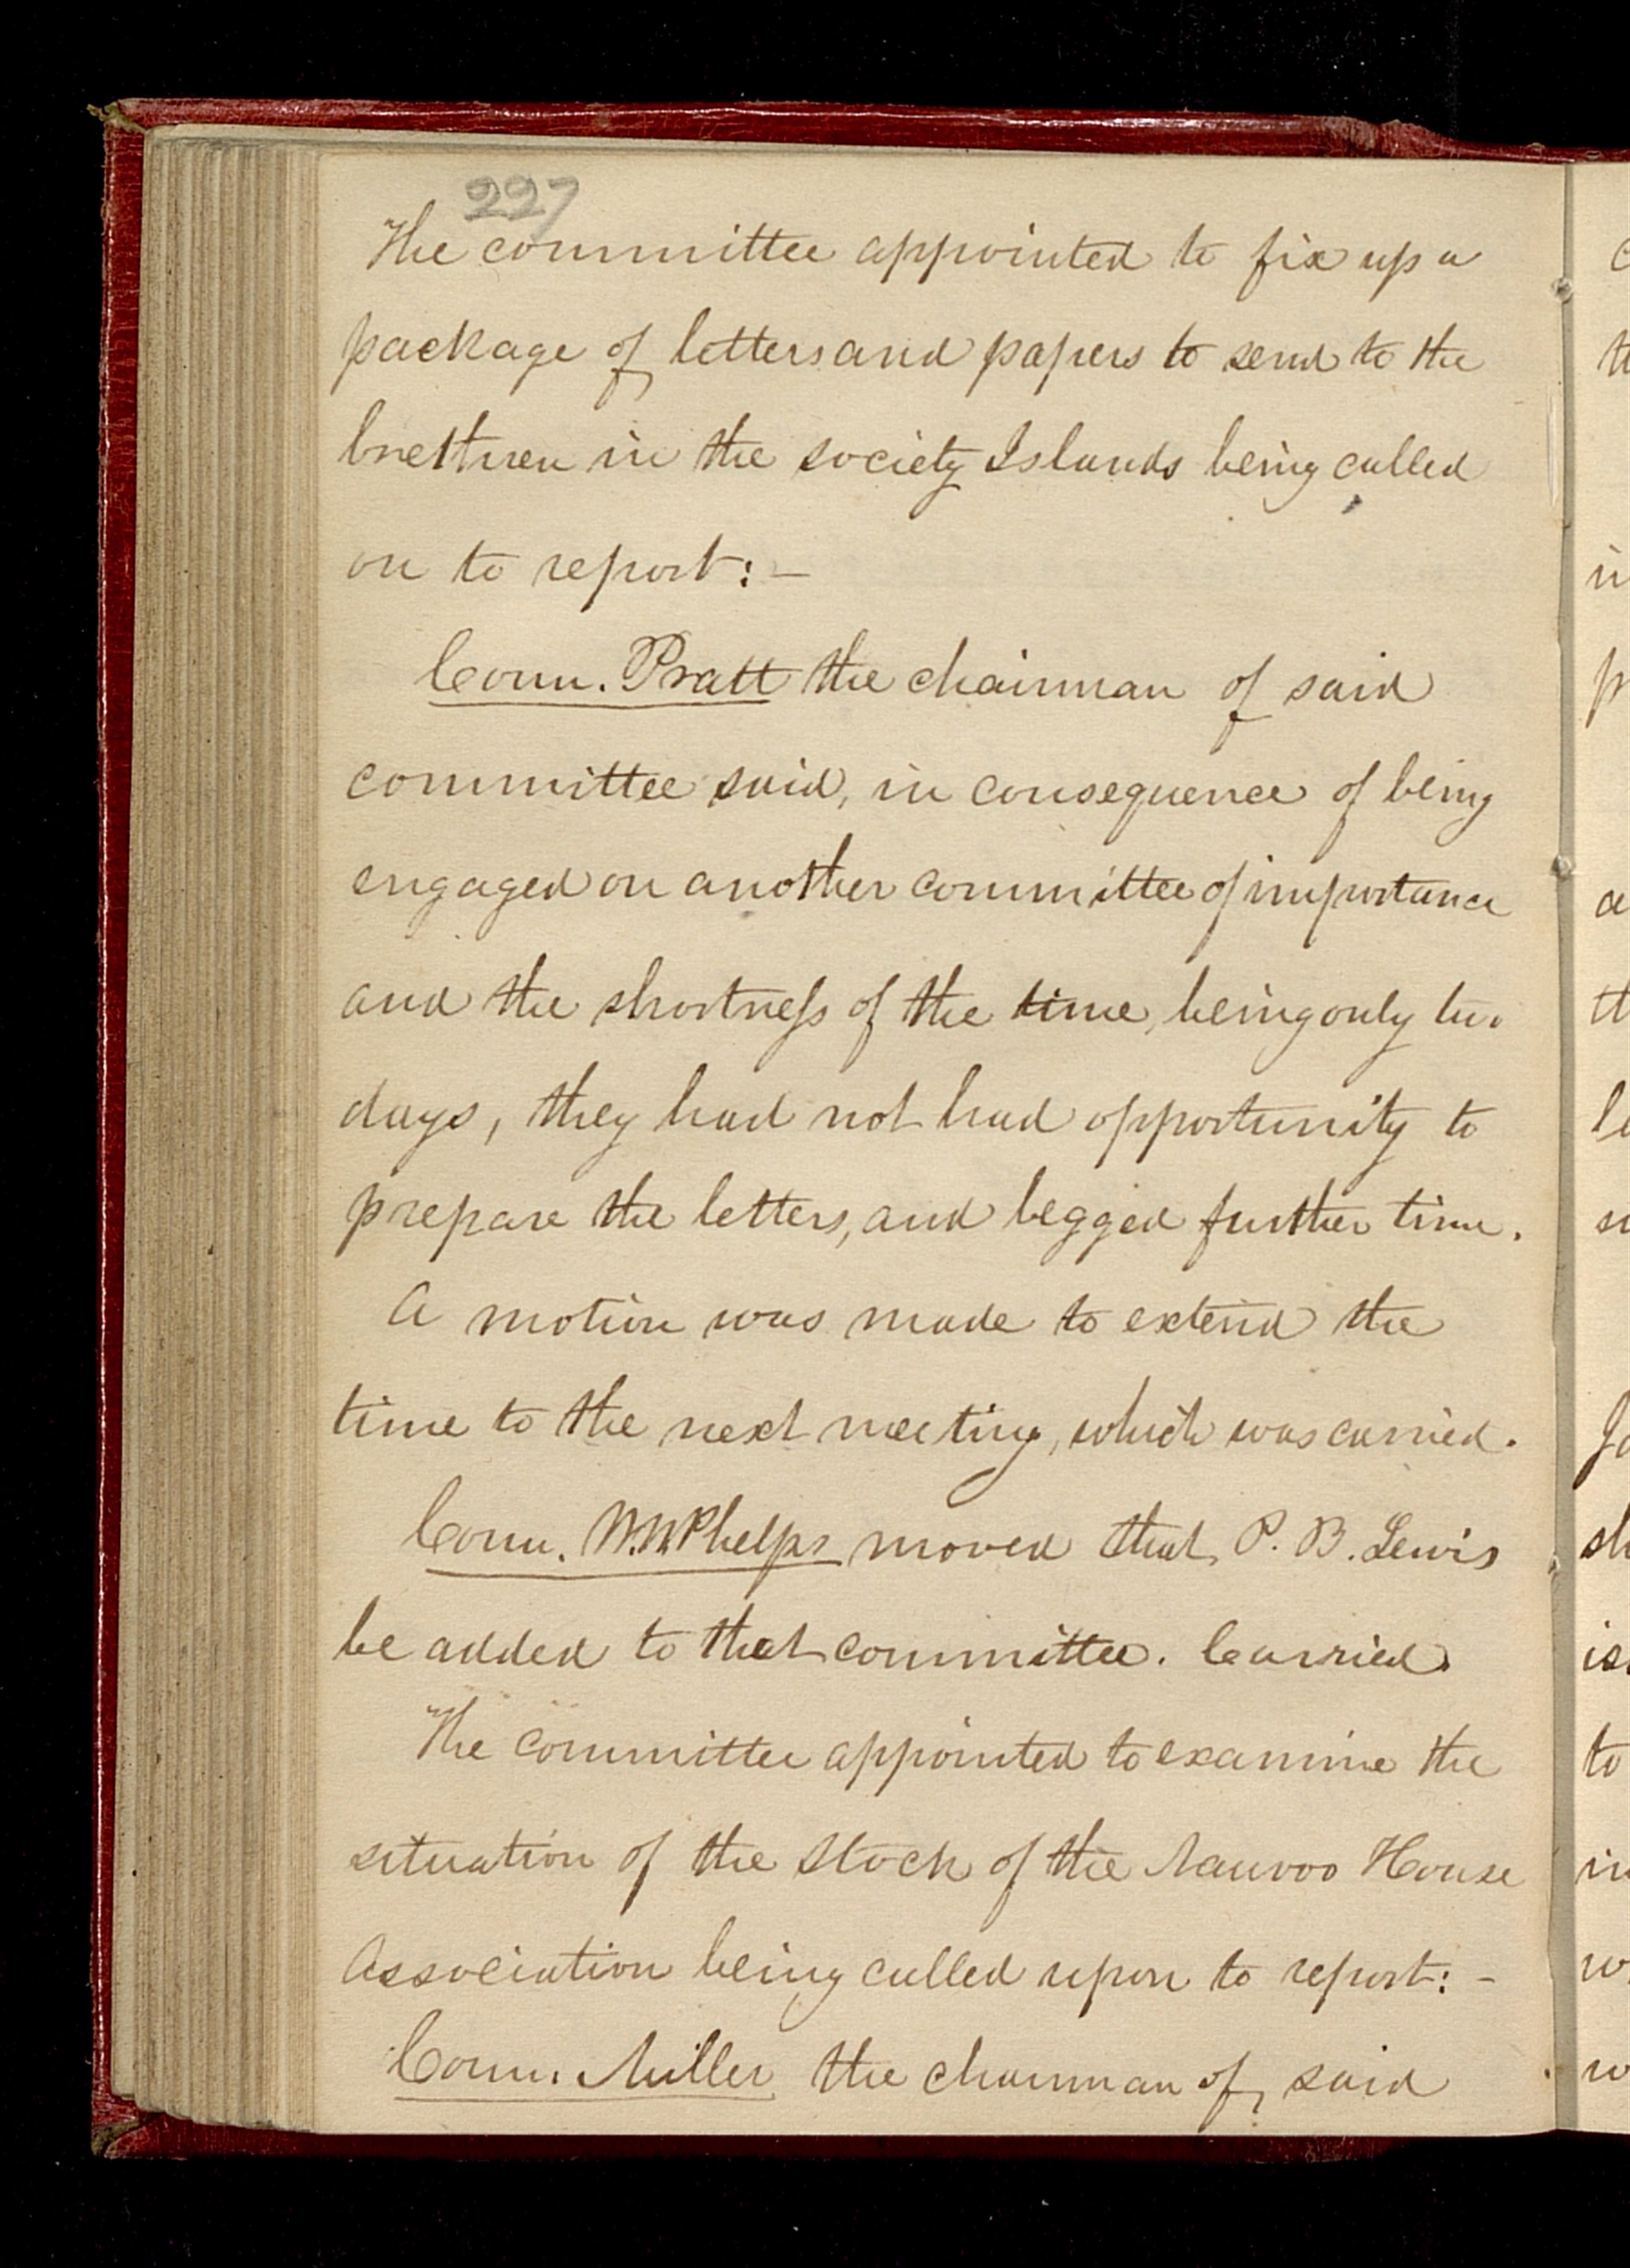 227
The committee appointed to fix up a
package of letters and papers to send to the
brethren in the society Islands being called
on to report: —
Coun. Pratt the chairman of said
committee said, in consequence of being
engaged on another committee of importance
and the shortness of the time, being only two
days, they had not had opportunity to
prepare the letters, and begged further time.
A motion was made to extend the
time to the next meeting, which was carried.
Coun. W. W. Phelps moved that P. B. Lewis
be added to that committee. Carried.
The committee appointed to examine the
situation of the stock of the Nauvoo House
Association being called upon to report: —
Coun. Miller the chairman of said